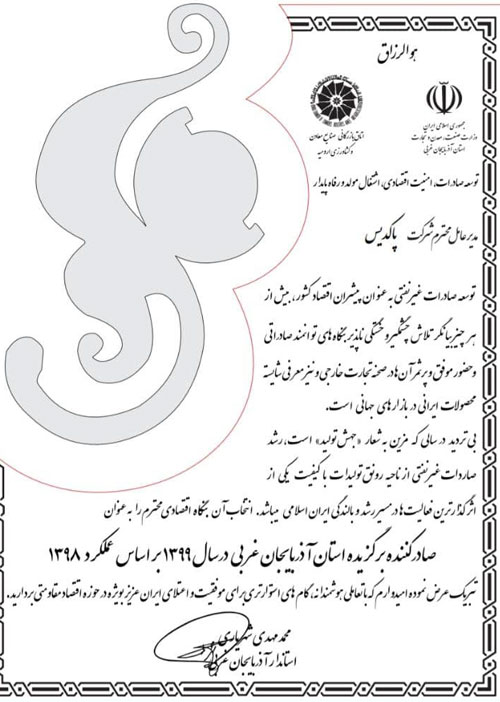 هوالرزاق
جمهوری اسلامی ایران
وزارت صنعت، معدن و تجارت
استان آذربایجان غربی
اتاق بازرگانی صنایع معادن
و کشاورزی ارومیه
توسعه صادرات، امنیت اقتصادی، اشتغال مولد و رفاه پایدار
مدیر عامل محترم شرکت پاکدیس
توسعه صادرات غیر نفتی به عنوان پیشران اقتصاد کشور، بیش از
هر چیز بیانگر تلاش چشمگیر و خستگی ناپذیر بنگاه های توانمند صادراتی
و حضور موفق و پرثمر آن ها در صحنه تجارت خارجی و نیز معرفی شایسته
محصولات ایرانی در بازارهای جهانی است.
بی تردید در سالی که مزین به شعار «جهش تولید» است، رشد
صادرات غیر نفتی از ناحیه رونق تولیدات با کیفیت یکی از
اثرگذارترین فعالیت ها در مسیر رشد و بالندگی ایران اسلامی میباشد. انتخاب آن بنگاه اقتصادی محترم را به عنوان
صادرکننده برگزیده استان آذربایجان غربی در سال ۱۳۹۹ بر اساس عملکرد ۱۳۹۸
تبریک عرض نموده امیدوارم که با تعاملی هوشمندانه، گام های استوارتری برای موفقیت و اعتلای ایران عزیز بویژه در حوزه اقتصاد مقاومتی بردارید.
محمد مهدی شهریاری
استاندار آذربایجان غربی